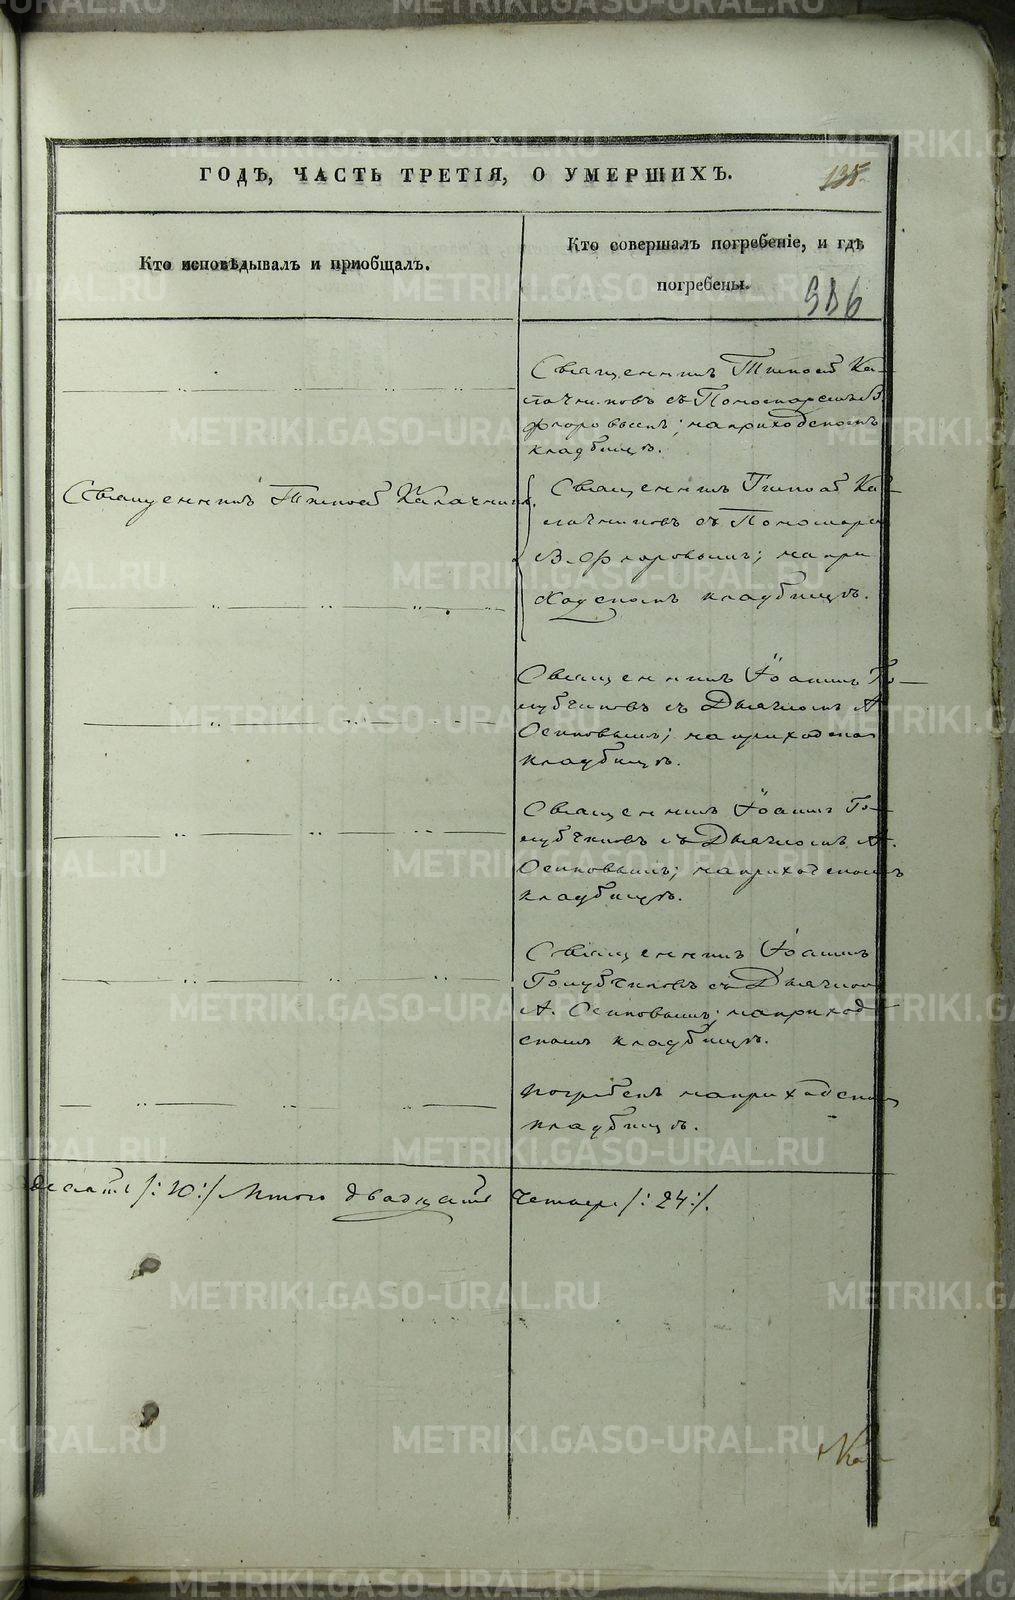 ГОДЪ, ЧАСТЬ ТРЕТІЯ, О УМЕРШИХЪ.
135.
Кто исповѣдывалъ и пріобщалъ.
Кто совершалъ погребеніе, и гдѣ
погребены.
Священникъ Тимоѳей Ка-
лачниковъ съ Пономаремъ В.
Флоровымъ; на приходскомъ
кладбищѣ.
Священникъ Тимоѳей Калачник.
Священникъ Тимоѳей Ка-
лачниковъ съ Пономаремъ
В. Флоровымъ; на при
ходскомъ кладбищѣ.
Священникъ Іоаннъ Го-
лубчиковъ съ Дьячкомъ А
Осиповымъ; на приходском
кладбищѣ.
Священникъ Іоаннъ Го-
лубчиковъ съ Дьячкомъ А.
Осиповымъ; на приходскомъ
кладбищѣ.
Священникъ Іоаннъ
Голубчиковъ съ Дьячком
А. Осиповымъ; на приход-
скомъ кладбищѣ.
погребенъ на приходском
кладбищѣ.
десять /:10:/ Итого двадцать четыре /:24:/.
METRIKI.GASO-URAL.RU